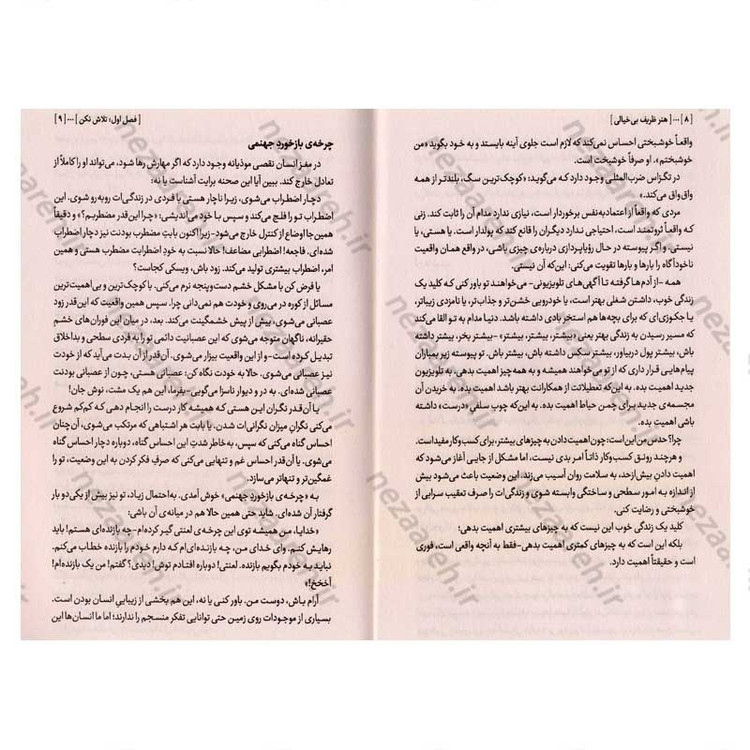 [ ۸ ] ... [ هنر ظریف بی‌خیالی ]
واقعاً خوشبختی احساس نمی‌کند که لازم است جلوی آینه بایستد و به خود بگوید «من
خوشبختم». او صرفاً خوشبخت است.
در تگزاس ضرب‌المثلی وجود دارد که می‌گوید: «کوچک‌ترین سگ، بلندتر از همه
واق‌واق می‌کند.»
مردی که واقعاً از اعتمادبه‌نفس برخوردار است، نیازی ندارد مدام آن را ثابت کند. زنی
که واقعاً ثروتمند است، احتیاجی ندارد دیگران را قانع کند که پولدار است. یا هستی، یا
نیستی. و اگر پیوسته در حال رؤیاپردازی درباره‌ی چیزی باشی، در واقع همان واقعیت
ناخودآگاه را بارها و بارها تقویت می‌کنی: این‌که آن نیستی.
همه -از آدم‌ها گرفته تا آگهی‌های تلویزیونی- می‌خواهند تو باور کنی که کلید یک
زندگی خوب، داشتن شغلی بهتر است، یا خودرویی خشن‌تر و جذاب‌تر، یا نامزدی زیباتر،
یا جکوزی‌ای که برای بچه‌ها هم استخر بادی داشته باشد. دنیا مدام به تو القا می‌کند
که مسیر رسیدن به زندگی بهتر یعنی «بیشتر، بیشتر، بیشتر» -بیشتر بخر، بیشتر داشته
باش، بیشتر پول دربیاور، بیشتر سکس داشته باش، بیشتر باش. تو پیوسته زیر بمباران
پیام‌هایی قرار داری که از تو می‌خواهند همیشه و به همه چیز اهمیت بدهی. به تلویزیون
جدید اهمیت بده. به این‌که تعطیلاتت از همکارانت بهتر باشد اهمیت بده. به خریدن آن
مجسمه‌ی جدید برای چمن حیاط اهمیت بده. به این‌که چوب سلفیِ «درست» داشته
باشی اهمیت بده.
چرا؟ حدس من این است: چون اهمیت دادن به چیزهای بیشتر، برای کسب‌وکار مفید است.
و هرچند رونق کسب‌وکار ذاتاً امر بدی نیست، اما مشکل از جایی آغاز می‌شود که
اهمیت دادنِ بیش‌ازحد، به سلامت روان آسیب می‌زند. این وضعیت باعث می‌شود بیش
از اندازه به امور سطحی و ساختگی وابسته شوی و زندگی‌ات را صرف تعقیب سرابی از
خوشبختی و رضایت کنی.
کلید یک زندگی خوب این نیست که به چیزهای بیشتری اهمیت بدهی؛
بلکه این است که به چیزهای کمتری اهمیت بدهی -فقط به آنچه واقعی است، فوری
است و حقیقتاً اهمیت دارد.
[ فصل اول: تلاش نکن ] ... [ ۹ ]
چرخه‌ی بازخوردِ جهنمی
در مغز انسان نقصی موذیانه وجود دارد که اگر مهارش رها شود، می‌تواند او را کاملاً از
تعادل خارج کند. ببین آیا این صحنه برایت آشناست یا نه:
دچار اضطراب می‌شوی، زیرا ناچار هستی با فردی در زندگی‌ات روبه‌رو شوی. این
اضطراب تو را فلج می‌کند و سپس با خود می‌اندیشی: «چرا این‌قدر مضطربم؟» و دقیقاً
همین جا اوضاع از کنترل خارج می‌شود- زیرا اکنون بابت مضطرب بودنت نیز دچار اضطراب
شده‌ای. فاجعه! اضطرابی مضاعف! حالا نسبت به خودِ اضطرابت مضطرب هستی و همین
امر، اضطراب بیشتری تولید می‌کند. زود باش، ویسکی کجاست؟
یا فرض کن با مشکل خشم دست‌وپنجه نرم می‌کنی. با کوچک‌ترین و بی‌اهمیت‌ترین
مسائل از کوره در می‌روی و خودت هم نمی‌دانی چرا. سپس همین واقعیت که این‌قدر زود
عصبانی می‌شوی، بیش از پیش خشمگینت می‌کند. بعد، در میان این فوران‌های خشم
حقیرانه، ناگهان متوجه می‌شوی که این عصبانیت دائمی تو را به فردی سطحی و بدطینت
تبدیل کرده است -و از این واقعیت بیزار می‌شوی. آن‌قدر از آن بدت می‌آید که از خودت
نیز عصبانی می‌شوی. حالا به خودت نگاه کن: عصبانی هستی، چون از عصبانی بودنت
عصبانی شده‌ای. به در و دیوار ناسزا می‌گویی -بفرما، این هم یک مشت، نوش جان!
یا آن‌قدر نگران این هستی که همیشه کار درست را انجام دهی که کم‌کم شروع
می‌کنی نگرانِ میزان نگرانی‌ات شدن. یا بابت هر اشتباهی که مرتکب می‌شوی، آن‌چنان
احساس گناه می‌کنی که سپس، به‌خاطر شدتِ این احساس گناه، دوباره دچار احساس گناه
می‌شوی. یا آن‌قدر احساس غم و تنهایی می‌کنی که صرفِ فکر کردن به این وضعیت، تو را
غمگین‌تر و تنهاتر می‌سازد.
به «چرخه‌ی بازخوردِ جهنمی» خوش آمدی. به‌احتمال زیاد، تو نیز بیش از یکی‌دو بار
گرفتار آن شده‌ای. شاید حتی همین حالا هم در میانه‌ی آن باشی:
«خدایا، من همیشه توی این چرخه‌ی لعنتی گیر کرده‌ام -چه بازنده‌ای هستم! باید
رهایش کنم. وای خدای من، چه بازنده‌ای‌ام که دارم خودم را بازنده خطاب می‌کنم.
نباید به خودم بگویم بازنده. لعنتی! دوباره افتادم توش! دیدی؟ گفتم! من یک بازنده‌ام!
آخخخ!»
آرام باش، دوست من. باور کنی یا نه، این هم بخشی از زیباییِ انسان بودن است.
بسیاری از موجودات روی زمین حتی توانایی تفکر منسجم را ندارند؛ اما ما انسان‌ها این
nezaareh.ir